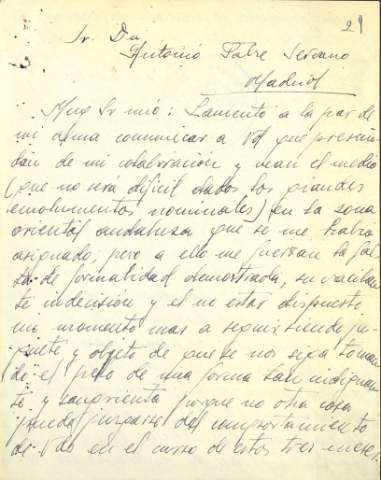 29
Sr. Dn
Antonio Fabre Serrano
Madrid
Muy Sr mio: Lamento a la par de
mi alma comunicar a Vd que prescin
dan de mi colaboración y vean el medio
(que no será dificil dados los grandes
emolumentos nominales) en la zona
oriental andaluza que se me había
asignado; pero a ello me fuerzan la fal
ta de formalidad demostrada, su vacilan
te indecisión y el no estar dispuesto
un momento mas a seguir siendo ju
guete y objeto de que se nos siga toman
do el pelo de una forma tan indignan
te y sangrienta porque no otra cosa
puede juzgarse del comportamiento
de Vds en el curso de estos tres meses